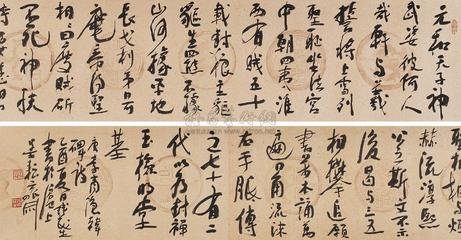 元和天子神
武姿彼何人
哉軒与羲
誓將上雪列
聖恥坐法宮
中朝四夷淮
西有賊五十
載封狼生貙
貙生羆不據
山河據平地
長戈利矛日可
麾帝得聖
相相曰度賊斫
不死神扶
聖相相与烜
赫流淳熙
公之斯文不示
後曷与三五
相攀追願
書萬本誦萬
遍口角流沫
右手胝傳
之七十有二
代以為封禪
玉檢明堂
基
唐李商隱韓
碑詩